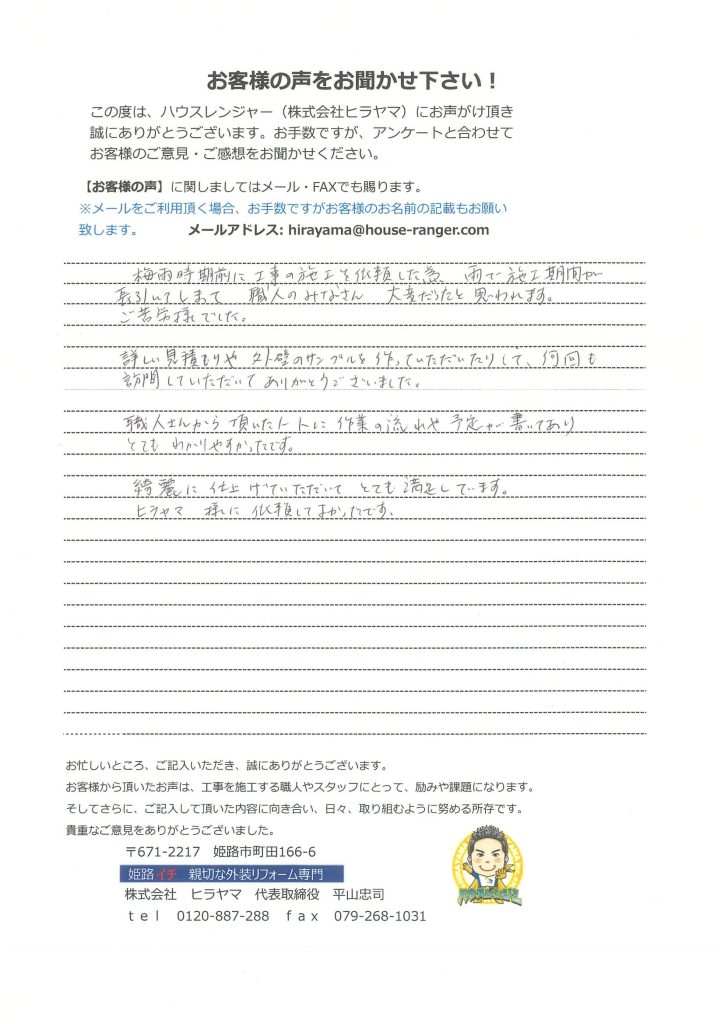 お客様の声をお聞かせ下さい！
この度は、ハウスレンジャー（株式会社ヒラヤマ）にお声がけ頂き
誠にありがとうございます。お手数ですが、アンケートと合わせて
お客様のご意見・ご感想をお聞かせください。
【お客様の声】に関しましてはメール・FAXでも賜ります。
※メールをご利用頂く場合、お手数ですがお客様のお名前の記載もお願い
致します。 メールアドレス: hirayama@house-ranger.com
梅雨時期前に工事の施工を依頼した為 雨で施工期間が
長引いてしまって 職人のみなさん 大変だったと思われます。
ご苦労様でした。
詳しい見積もりや 外壁のサンプルを作っていただいたりして、何回も
訪問していただいて ありがとうございました。
職人さんから 頂いたノートに 作業の流れや 予定が 書いてあり
とても わかりやすかったです。
綺麗に 仕上げていただいて とても 満足しています。
ヒラヤマ 様に 依頼して よかったです。
お忙しいところ、ご記入いただき、誠にありがとうございます。
お客様から頂いたお声は、工事を施工する職人やスタッフにとって、励みや課題になります。
そしてさらに、ご記入して頂いた内容に向き合い、日々、取り組むように努める所存です。
貴重なご意見をありがとうございました。
〒671-2217 姫路市町田166-6
姫路イチ 親切な外装リフォーム専門
株式会社 ヒラヤマ 代表取締役 平山忠司
ｔｅｌ 0120-887-288 ｆａｘ 079-268-1031
ハウスレンジャー